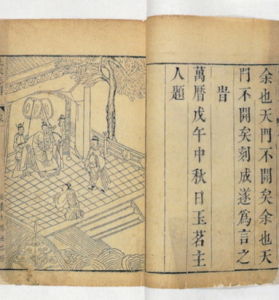 余也天門不開矣余也天
門不開矣刻成遂爲言之
旹
萬曆戊午中秋日玉茗主
人題